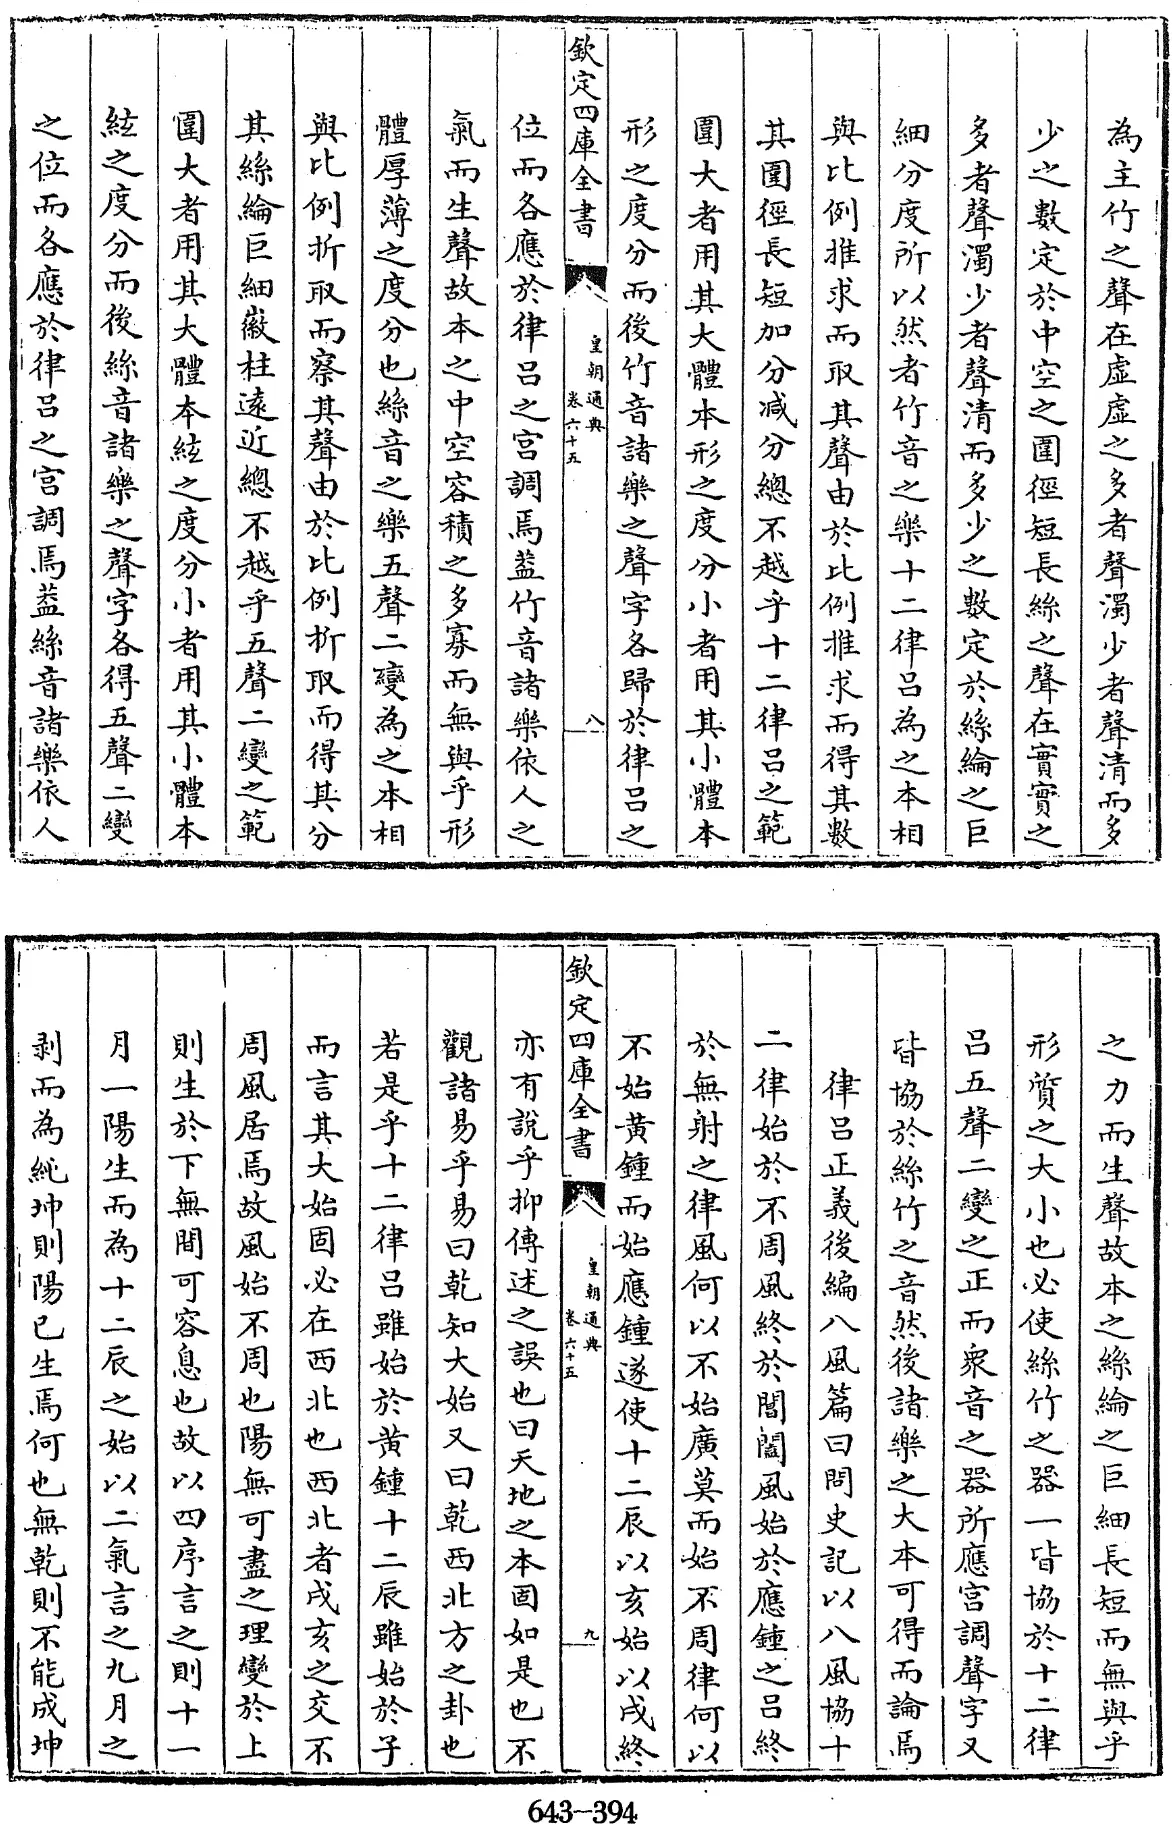 為主竹之聲在虛虛之多者聲濁少者聲清而多
少之數定於中空之圍徑短長絲之聲在實實之
多者聲濁少者聲清而多少之數定於絲綸之巨
細分度所以然者竹音之樂十二律呂為之本相
與比例推求而取其聲由於比例推求而得其數
其圍徑長短加分減分總不越乎十二律呂之範
圍大者用其大體本形之度分小者用其小體本
形之度分而後竹音諸樂之聲字各歸於律呂之
欽定四庫全書 皇朝通典 卷六十五 八
位而各應於律呂之宮調焉葢竹音諸樂依人之
氣而生聲故本之中空容積之多寡而無與乎形
體厚薄之度分也絲音之樂五聲二變為之本相
與比例折取而察其聲由於比例折取而得其分
其絲綸巨細徽柱遠近總不越乎五聲二變之範
圍大者用其大體本絃之度分小者用其小體本
絃之度分而後絲音諸樂之聲字各得五聲二變
之位而各應於律呂之宮調焉葢絲音諸樂依人
之力而生聲故本之絲綸之巨細長短而無與乎
形質之大小也必使絲竹之器一皆協於十二律
呂五聲二變之正而衆音之器所應宮調聲字又
皆協於絲竹之音然後諸樂之大本可得而論焉
律呂正義後編八風篇曰問史記以八風協十
二律始於不周風終於閶闔風始於應鍾之呂終
於無射之律風何以不始廣莫而始不周律何以
不始黃鍾而始應鍾遂使十二辰以亥始以戌終
欽定四庫全書 皇朝通典 卷六十五 九
亦有說乎抑傳述之誤也曰天地之本固如是也不
觀諸易乎易曰乾知大始又曰乾西北方之卦也
若是乎十二律呂雖始於黃鍾十二辰雖始於子
而言其大始固必在西北也西北者戌亥之交不
周風居焉故風始不周也陽無可盡之理變於上
則生於下無間可容息也故以四序言之則十一
月一陽生而為十二辰之始以二氣言之九月之
剥而為純坤則陽已生焉何也無乾則不能成坤
643-394